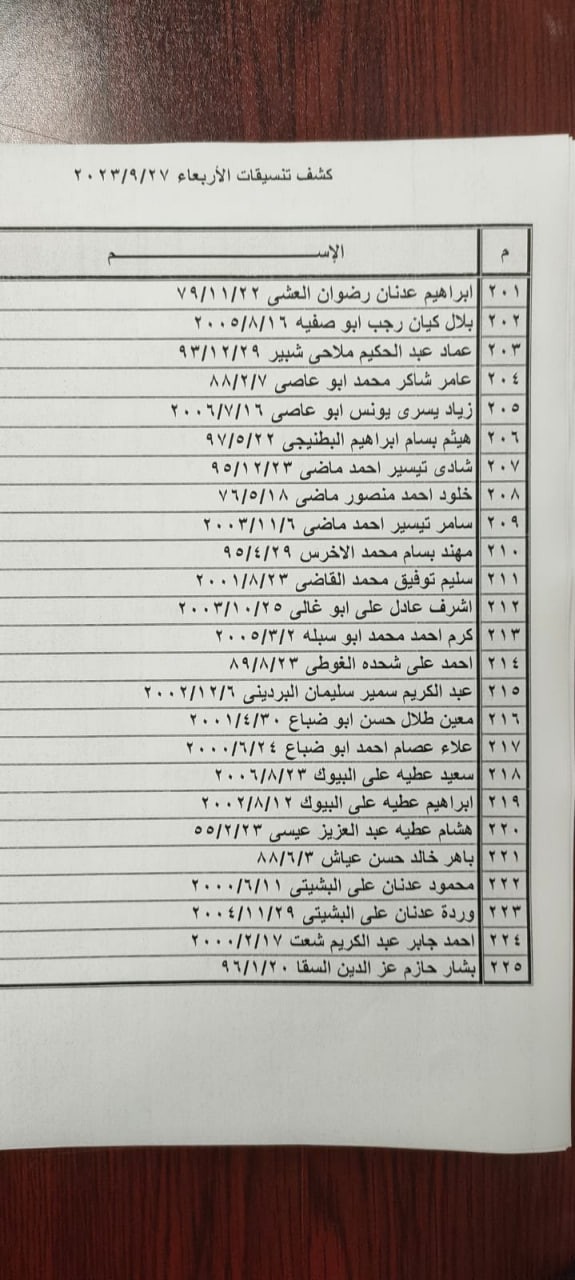 كشف تنسيقات الأربعاء ٢٠٢٣/٩/٢٧
م الإســـــــــــم
٢٠١ ابراهيم عدنان رضوان العشى ٧٩/١١/٢٢
٢٠٢ بلال كيان رجب ابو صفيه ٢٠٠٥/٨/١٦
٢٠٣ عماد عبد الحكيم ملاحى شبير ٩٣/١٢/٢٩
٢٠٤ عامر شاكر محمد ابو عاصى ٨٨/٢/٧
٢٠٥ زياد يسرى يونس ابو عاصى ٢٠٠٦/٧/١٦
٢٠٦ هيثم بسام ابراهيم البطنيجى ٩٧/٥/٢٢
٢٠٧ شادى تيسير احمد ماضى ٩٥/١٢/٢٣
٢٠٨ خلود احمد منصور ماضى ٧٦/٥/١٨
٢٠٩ سامر تيسير احمد ماضى ٢٠٠٣/١١/٦
٢١٠ مهند بسام محمد الاخرس ٩٥/٤/٢٩
٢١١ سليم توفيق محمد القاضى ٢٠٠١/٨/٢٣
٢١٢ اشرف عادل على ابو غالى ٢٠٠٣/١٠/٢٥
٢١٣ كرم احمد محمد ابو سبله ٢٠٠٥/٣/٢
٢١٤ احمد على شحده الغوطى ٨٩/٨/٢٣
٢١٥ عبد الكريم سمير سليمان البردينى ٢٠٠٢/١٢/٦
٢١٦ معين طلال حسن ابو ضباع ٢٠٠١/٤/٣٠
٢١٧ علاء عصام احمد ابو ضباع ٢٠٠٠/٦/٢٤
٢١٨ سعيد عطيه على البيوك ٢٠٠٦/٨/٢٣
٢١٩ ابراهيم عطيه على البيوك ٢٠٠٢/٨/١٢
٢٢٠ هشام عطيه عبد العزيز عيسى ٥٥/٢/٢٣
٢٢١ باهر خالد حسن عياش ٨٨/٦/٣
٢٢٢ محمود عدنان على البشيتى ٢٠٠٠/٦/١١
٢٢٣ وردة عدنان على البشيتى ٢٠٠٤/١١/٢٩
٢٢٤ احمد جابر عبد الكريم شعت ٢٠٠٠/٢/١٧
٢٢٥ بشار حازم عز الدين السقا ٩٦/١/٢٠